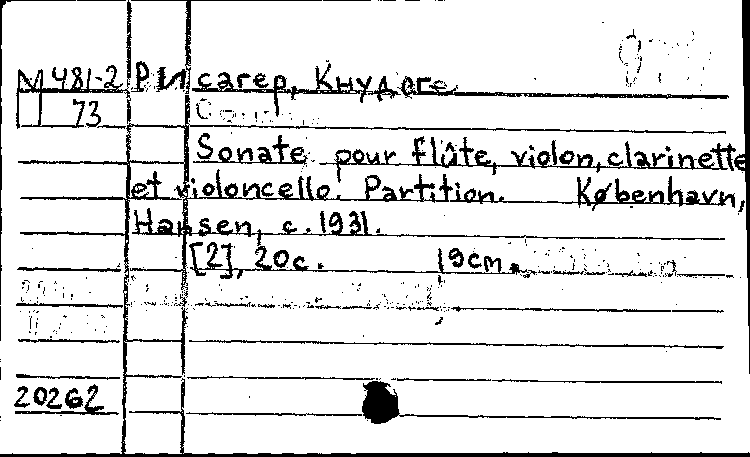 М 481-2 Рисагер, Кнудоге
73
Sonate pour flûte, violon, clarinette
et violoncello. Partition. København,
Hansen, c. 1931.
[2], 20с. 19cm.
20262